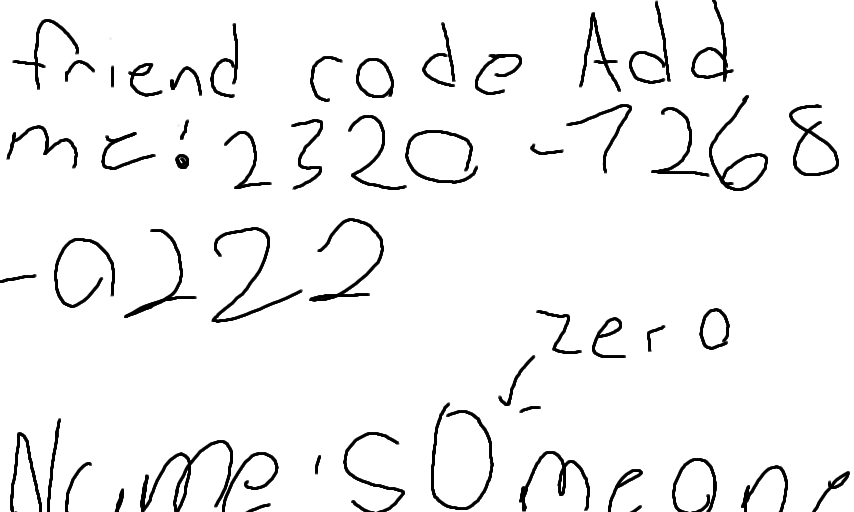 friend code Add
me: 2320-7268
-0222
zero
Name: s0meone